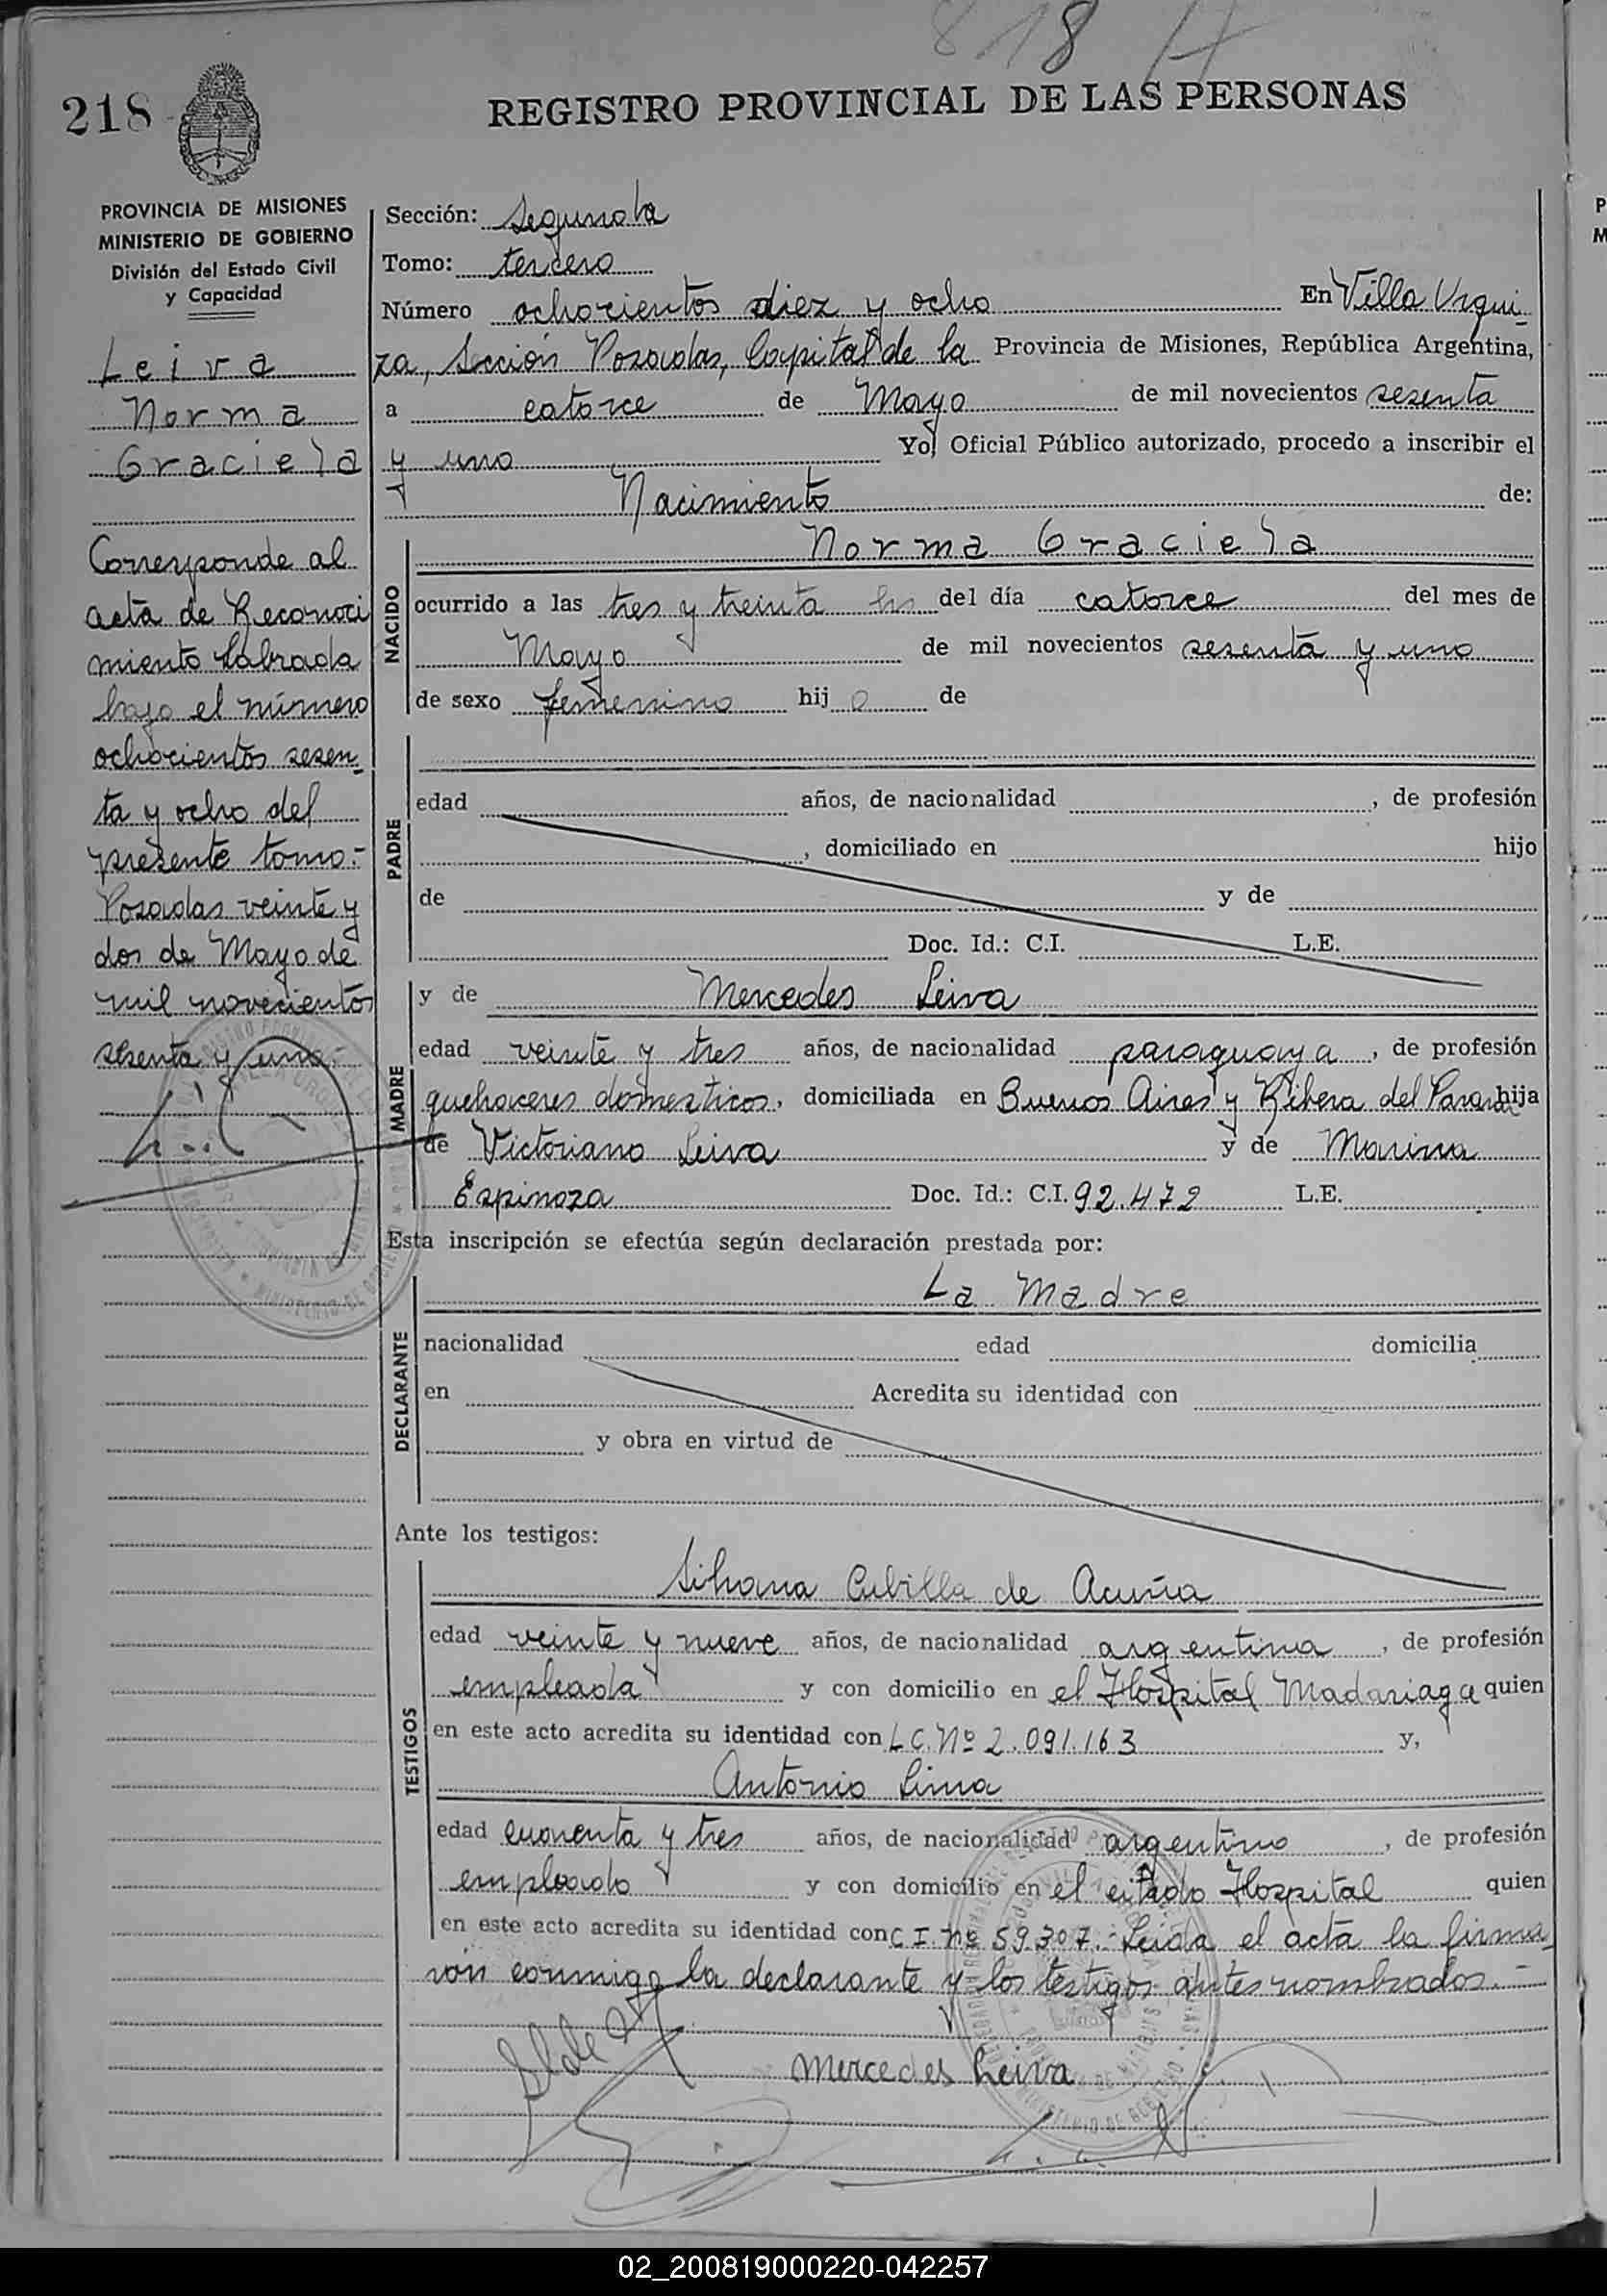 818 A
218
REGISTRO PROVINCIAL DE LAS PERSONAS
PROVINCIA DE MISIONES
MINISTERIO DE GOBIERNO
División del Estado Civil
y Capacidad
Leiva
Norma
Graciela
Corresponde al
acta de Reconoci
miento labrada
bajo el número
ochocientos sesen-
ta y ocho del
presente tomo.-
Posadas veinte y
dos de Mayo de
mil novecientos
sesenta y uno.-
Sección: Segunda
Tomo: tercero
Número ochocientos diez y ocho En Villa Urqui-
za, Sección Posadas, Capital de la Provincia de Misiones, República Argentina,
a catorce de Mayo de mil novecientos sesenta
y uno Yo, Oficial Público autorizado, procedo a inscribir el
Nacimiento de:
NACIDO
Norma Graciela
ocurrido a las tres y treinta hs del día catorce del mes de
Mayo de mil novecientos sesenta y uno
de sexo femenino hij a de
PADRE
edad años, de nacionalidad , de profesión
, domiciliado en hijo
de y de
Doc. Id.: C.I. L.E.
MADRE
y de Mercedes Leiva
edad veinte y tres años, de nacionalidad paraguaya, de profesión
quehaceres domesticos, domiciliada en Buenos Aires y Ribera del Paraná hija
de Victoriano Leiva y de Marina
Espinoza Doc. Id.: C.I. 92.472 L.E.
Esta inscripción se efectúa según declaración prestada por:
DECLARANTE
La Madre
nacionalidad edad domicilia
en Acredita su identidad con
y obra en virtud de
Ante los testigos:
TESTIGOS
Silvana Cubilla de Acuña
edad veinte y nueve años, de nacionalidad argentina, de profesión
empleada y con domicilio en el Hospital Madariaga quien
en este acto acredita su identidad con L.C. Nº 2.091.163 y,
Antonio Lima
edad cuarenta y tres años, de nacionalidad argentino, de profesión
empleado y con domicilio en el citado Hospital quien
en este acto acredita su identidad con C.I. nº 59.307.- Leida el acta la firma-
ron conmigo la declarante y los testigos antes nombrados.-
Mercedes Leiva
02_200819000220-042257